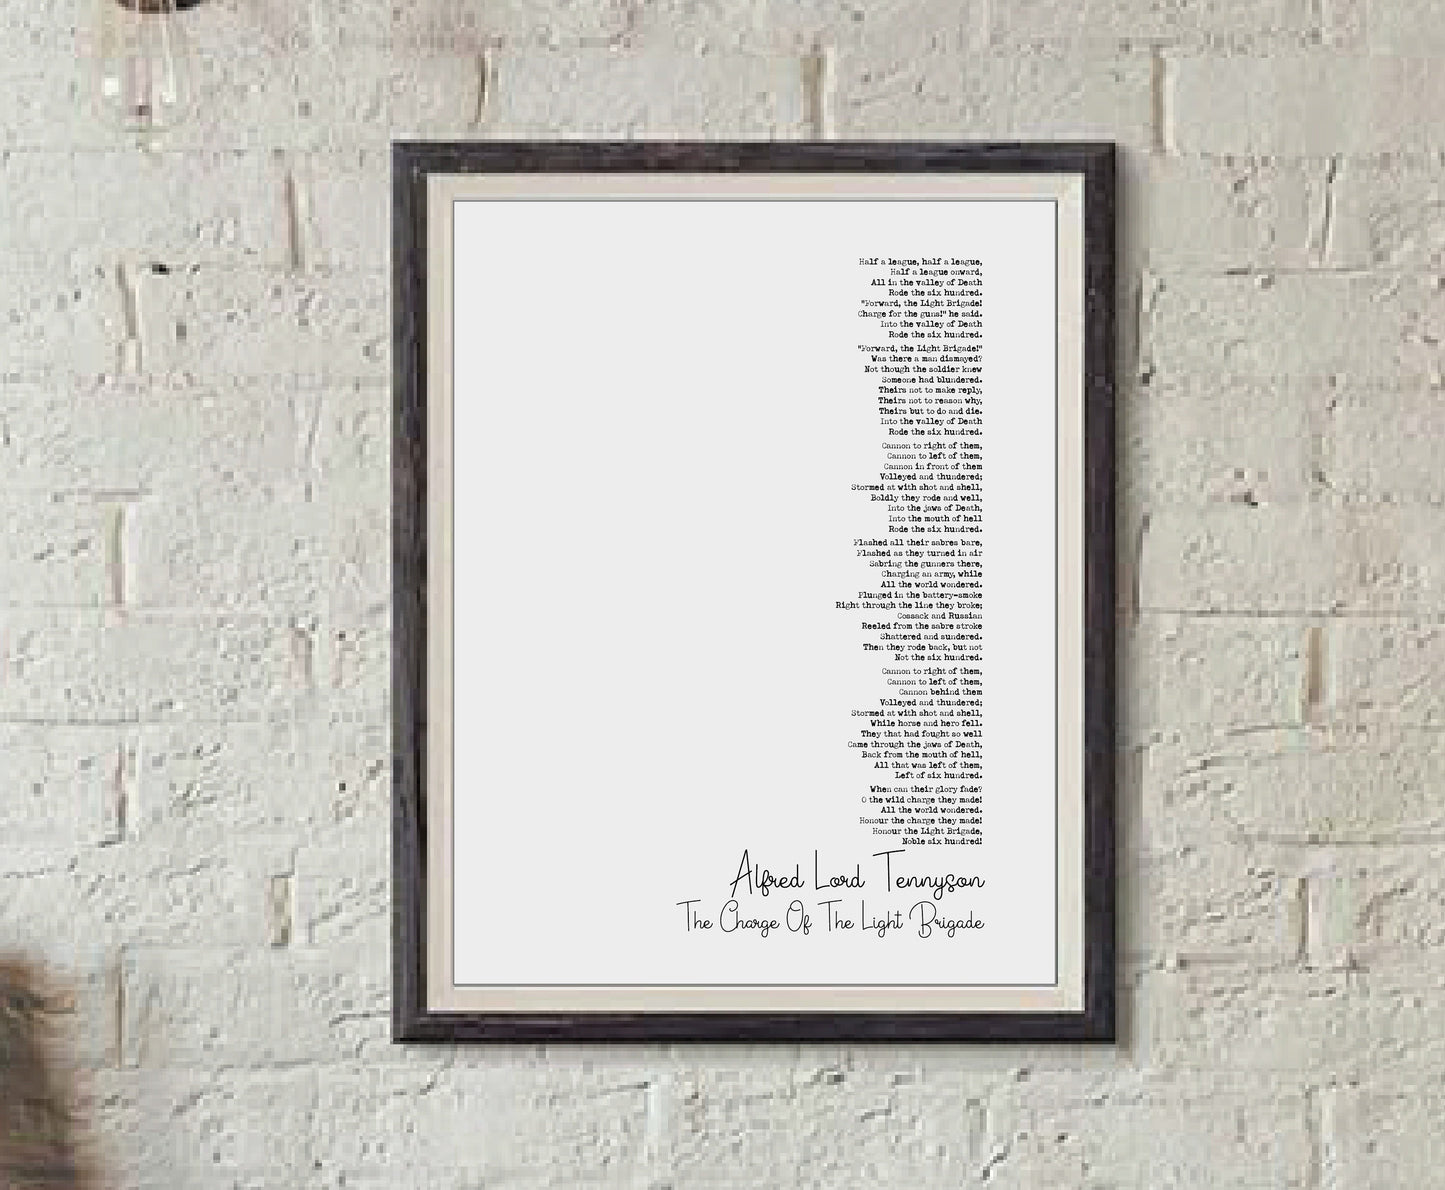 Half a league, half a league,
Half a league onward,
All in the valley of Death
Rode the six hundred.
"Forward, the Light Brigade!
Charge for the guns!" he said.
Into the valley of Death
Rode the six hundred.
"Forward, the Light Brigade!"
Was there a man dismayed?
Not though the soldier knew
Someone had blundered.
Theirs not to make reply,
Theirs not to reason why,
Theirs but to do and die.
Into the valley of Death
Rode the six hundred.
Cannon to right of them,
Cannon to left of them,
Cannon in front of them
Volleyed and thundered;
Stormed at with shot and shell,
Boldly they rode and well,
Into the jaws of Death,
Into the mouth of hell
Rode the six hundred.
Flashed all their sabres bare,
Flashed as they turned in air
Sabring the gunners there,
Charging an army, while
All the world wondered.
Plunged in the battery-smoke
Right through the line they broke;
Cossack and Russian
Reeled from the sabre stroke
Shattered and sundered.
Then they rode back, but not
Not the six hundred.
Cannon to right of them,
Cannon to left of them,
Cannon behind them
Volleyed and thundered;
Stormed at with shot and shell,
While horse and hero fell.
They that had fought so well
Came through the jaws of Death,
Back from the mouth of hell,
All that was left of them,
Left of six hundred.
When can their glory fade?
O the wild charge they made!
All the world wondered.
Honour the charge they made!
Honour the Light Brigade,
Noble six hundred!
Alfred Lord Tennyson
The Charge Of The Light Brigade